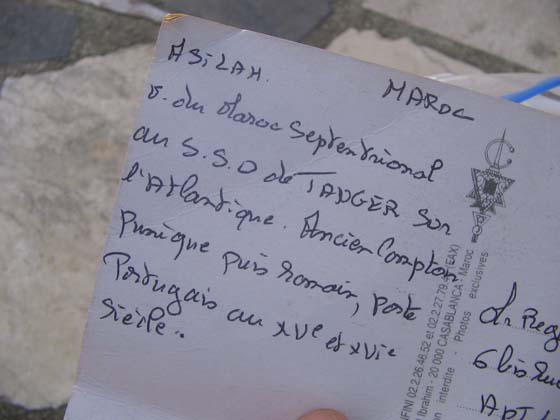 ASiLAH. MAROC
v. du Maroc Septentrional
au S.S.O de TANGER sur
l'Atlantique. Ancien Comptoir
Punique puis romain, poste
Portugais au XVe et XVIe
Siècle..
FINI 02.2.26.46.52 et 02.2.27.79
Ibrahim - 20 000 CASABLANCA - Maroc
interdite - Photos exclusives
6 bis
APT